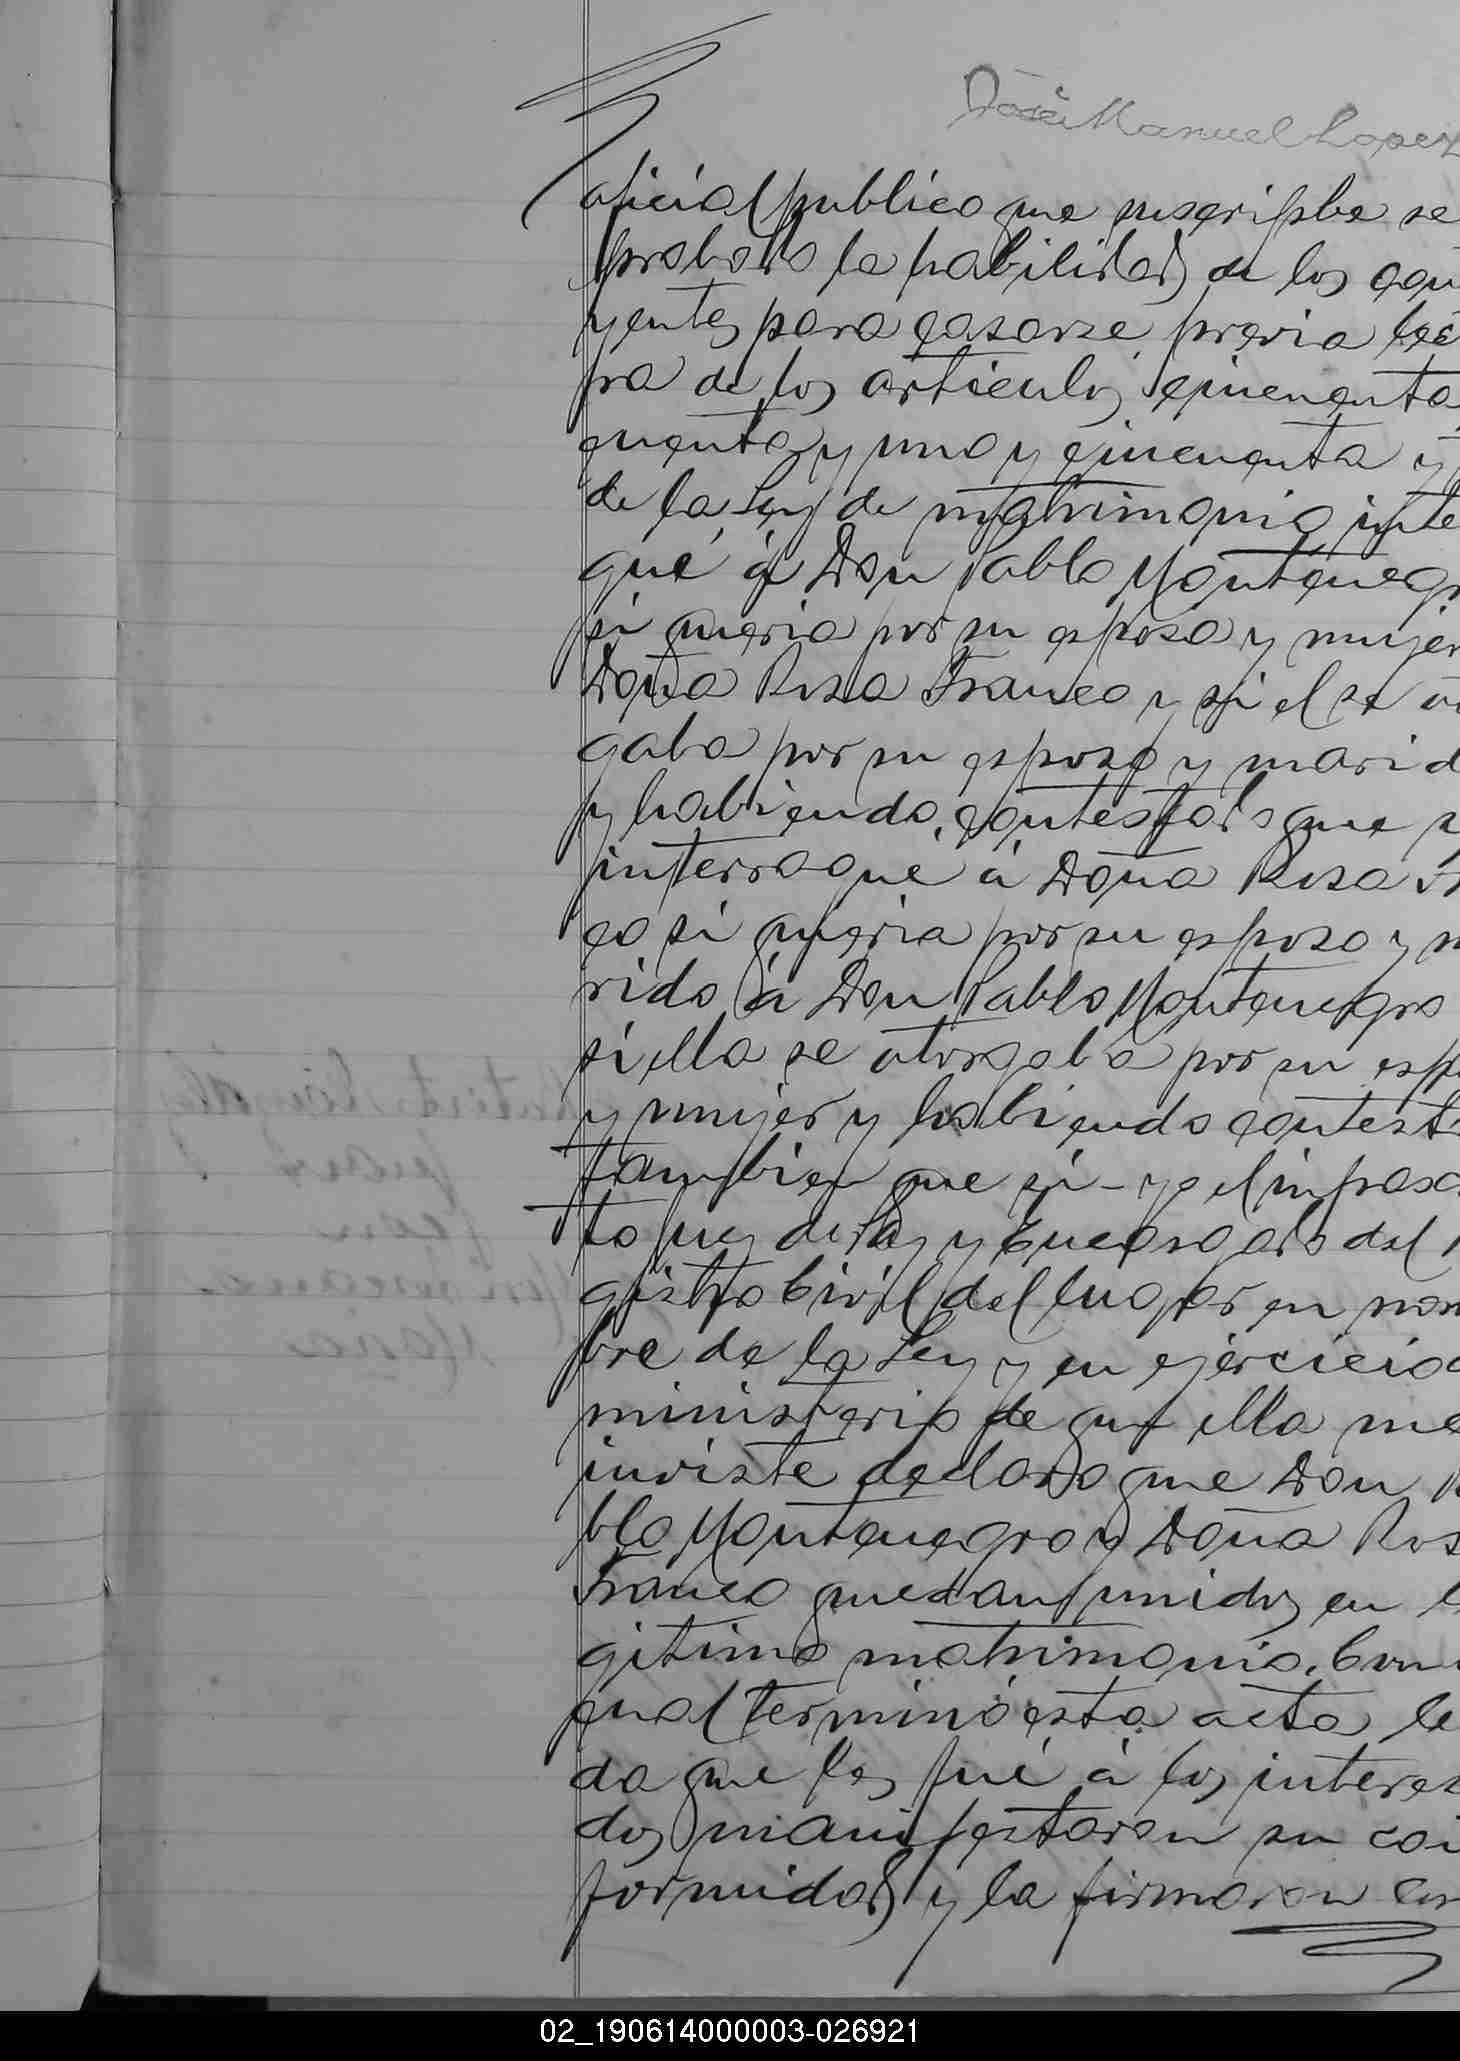 José Manuel Lopez
oficial publico que suscripbe se
probado la habilidad de los con
yentes para casarse, previa lec
ra de los articulos cincuenta
cuenta y uno y cincuenta y
de la Ley de matrimonio inte
gué á Don Pablo Montenegr
si queria por su esposa y mujer
Doña Rosa Franco y si el se o
gaba por su esposo y marid
y habiendo contestado que
interrogué á Doña Rosa Fr
co si queria por su esposo y m
rido á Don Pablo Montenegro
si ella se otorgaba por su esp
y mujer y habiendo contest
tambien que si - yo el infrasc
to juez de Paz y Encargado del
gistro Civil del lugar en nom
bre de la Ley y en ejercicio
ministerio de que ella me
inviste declaro que Don P
blo Montenegro y Doña Ros
Franco quedan unidos en l
gitimo matrimonio. Con
cual terminó esta acta le
da que les fué á los interes
dos manifestaron su con
formidad y la firmaron con
02_190614000003-026921